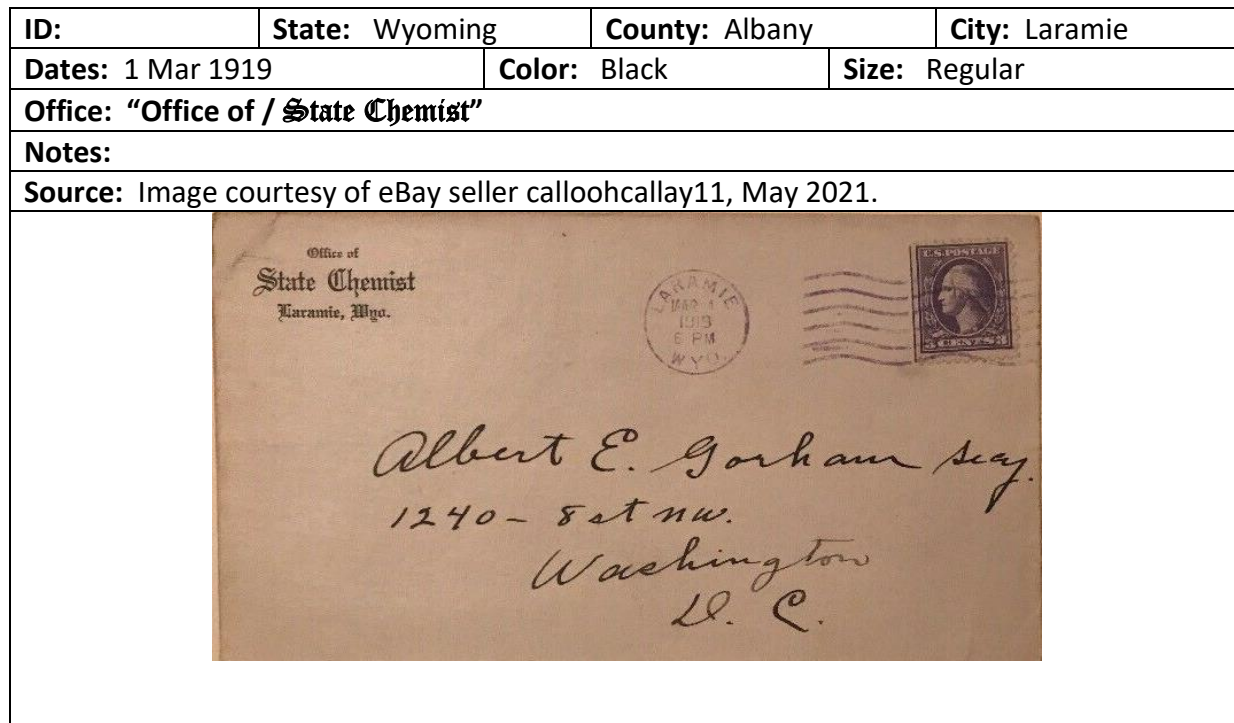 ID: State: Wyoming County: Albany City: Laramie
Dates: 1 Mar 1919 Color: Black Size: Regular
Office: “Office of / State Chemist”
Notes:
Source: Image courtesy of eBay seller calloohcallay11, May 2021.
Office of
State Chemist
Laramie, Wyo.
LARAMIE
MAR 1
1919
6 PM
WYO.
U.S. POSTAGE
3 CENTS 3
Albert E. Gorham Secy.
1240 - 8 st nw.
Washington
D. C.